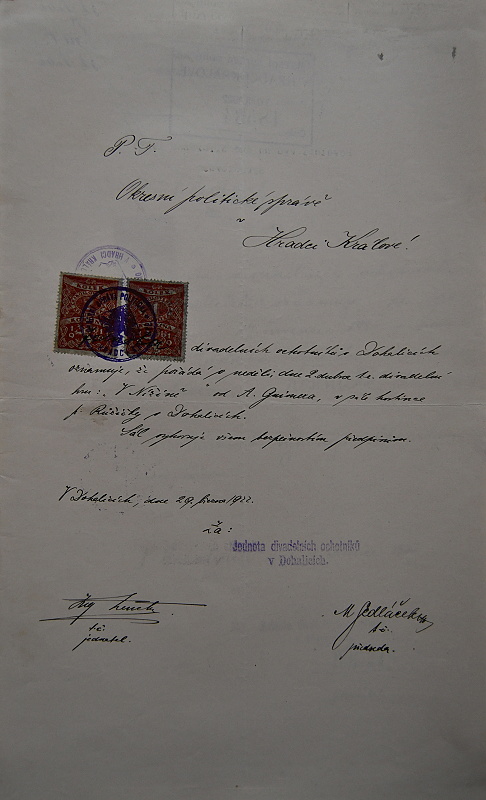 P. T.
Okresní politické správě
v
Hradci Králové!
divadelních ochotníků v Dohalicích
oznamuje, že pořádá v neděli dne 2 dubna t.r. divadelní
hru: "V Nížině" od A. Guimera, v hostince
p. Růžičky v Dohalicích.
Sál vyhovuje všem bezpečnostním předpisům.
V Dohalicích, dne 29. února 1922.
Za:
Jednota divadelních ochotníků
v Dohalicích.
t.č.
jednatel.
M Jedláček
t.č.
předseda.